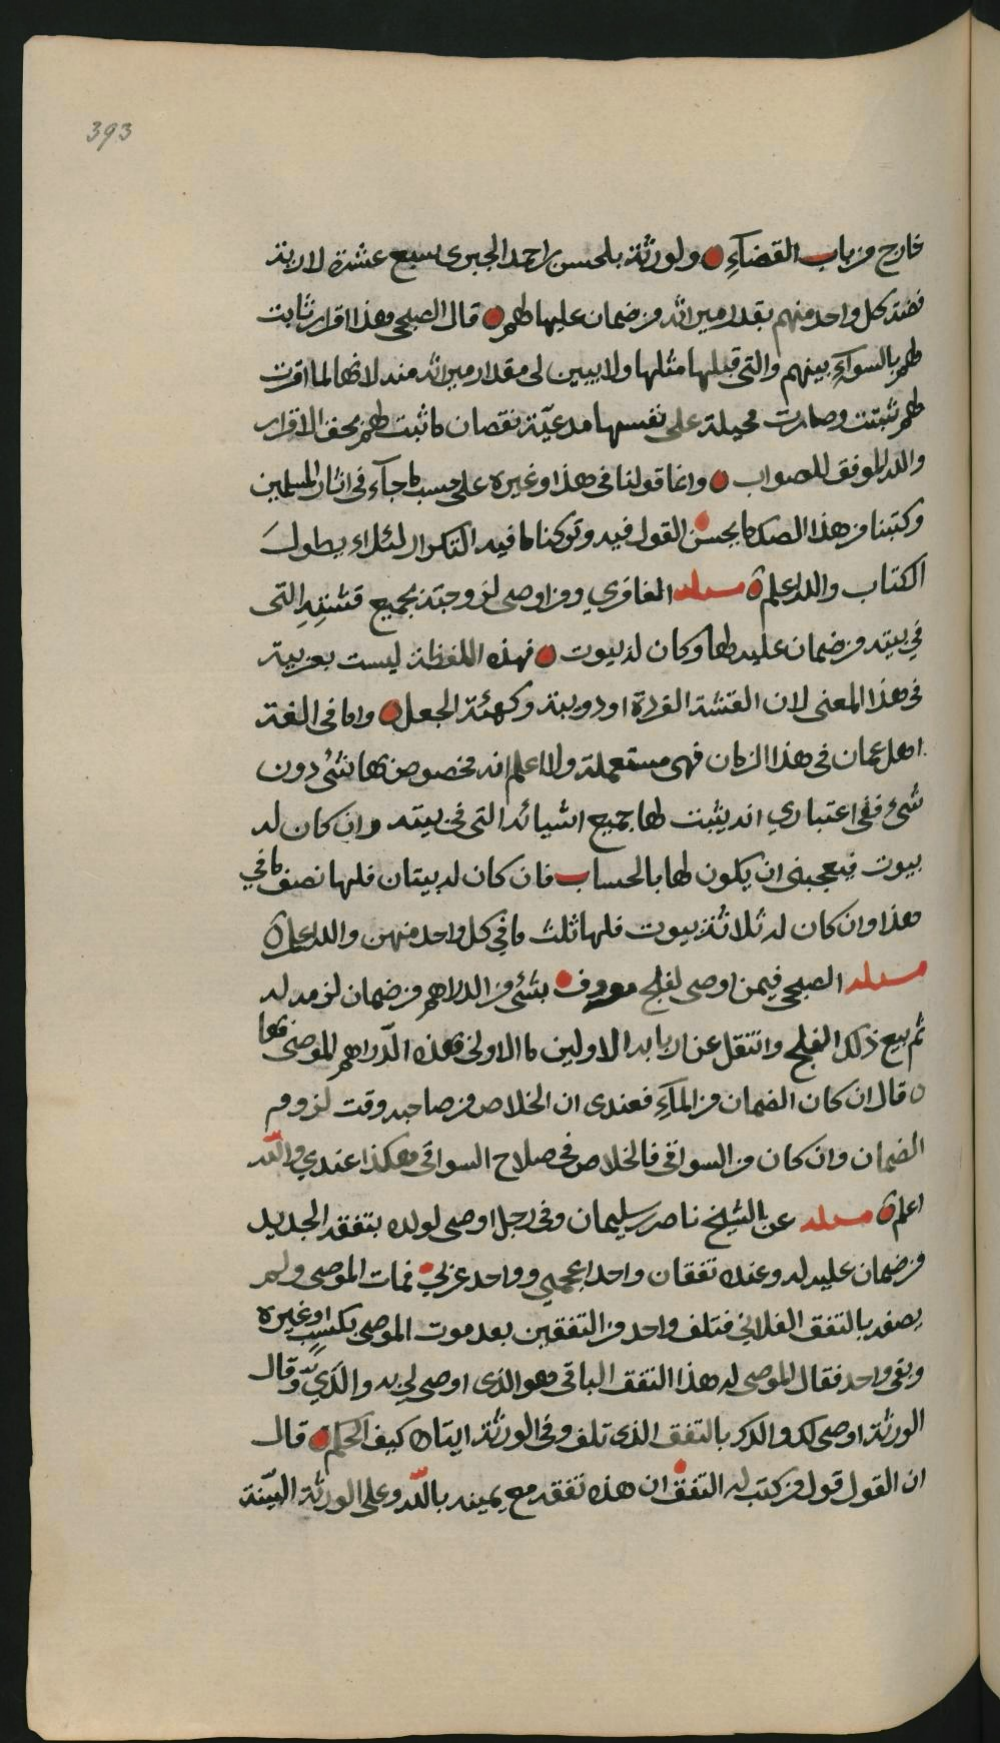 393
خارج من باب القضآءِ ولورثة بلحسن بن احمد الجبري سبع عشرة لارية
فضة كل واحد منهم بقدر ميراثه من ضمان عليها لهم قال الصبحي وهذا اقرار ثابت
لهم بالسوآءِ بينهم والتي قبلها مثلها ولا يبين لي مقدار ميراثه منه لانها لما اقرت
لهم ثبتت وصارت محيلة على نفسها مدعيّة نقصان ما ثبت لهم بحق الاقرار
والله الموفق للصواب وانما قولنا في هذا وغيره على حسب ما جآء في اثار المسلمين
وكتبنا من هذا الصك ما يحسن القول فيه وتركنا ما فيه التكرار لئلا يطول
الكتاب والله اعلم مسئلة المغافري ومن اوصى لزوجته بجميع قشته التي
في بيته من ضمان عليه لها وكان له بيوت فهذه اللفظة ليست بعربية
في هذا المعنى لان القشة القردة او دويبة كهيئة الجعل واما في الغة
اهل عمان في هذا الزمان فهي مستعملة ولا اعلم انه مخصوص بها شئ دون
شئ ففي اعتباري انه يثبت لها جميع اشيائه التي في بيته وان كان له
بيوت فيعجبني ان يكون لها بالحساب فان كان له بيتان فلها نصف ما في
هذا وان كان له ثلاثة بيوت فلها ثلث ما في كل واحد منهن والله اعلم
مسئلة الصبحي فيمن اوصى لفلج معروف بشئ من الدراهم من ضمان لزمه له
ثم بيع ذلك الفلج وانتقل عن اربابه الاولين ما الاولى بهذه الدّراهم الموصى بها
قال ان كان الضمان من المآءِ فعندي ان الخلاص من صاحبه وقت لزوم
الضمان وان كان من السواقي فالخلاص في صلاح السواقي هكذا عندي والله
اعلم مسئلة عن الشيخ ناصر بن سليمان وفي رجل اوصى لولده بتفقه الجديد
من ضمان عليه له وعنده تفقان واحد اعجمي وواحد عربي فمات الموصي ولم
يصفه بالتفق الفلاني فتلف واحد من التفقين بعد موت الموصي بكسب او غيره
وبقي واحد فقال الموصى له هذا التفق الباقي هو الذي اوصى لي به والدي وقال
الورثة اوصى لك والدك بالتفق الذي تلف وفي الورثة ايتام كيف الحكم قال
ان القول قول من كتب له التفق ان هذه تفقه مع يمينه بالله وعلى الورثة البيّنة